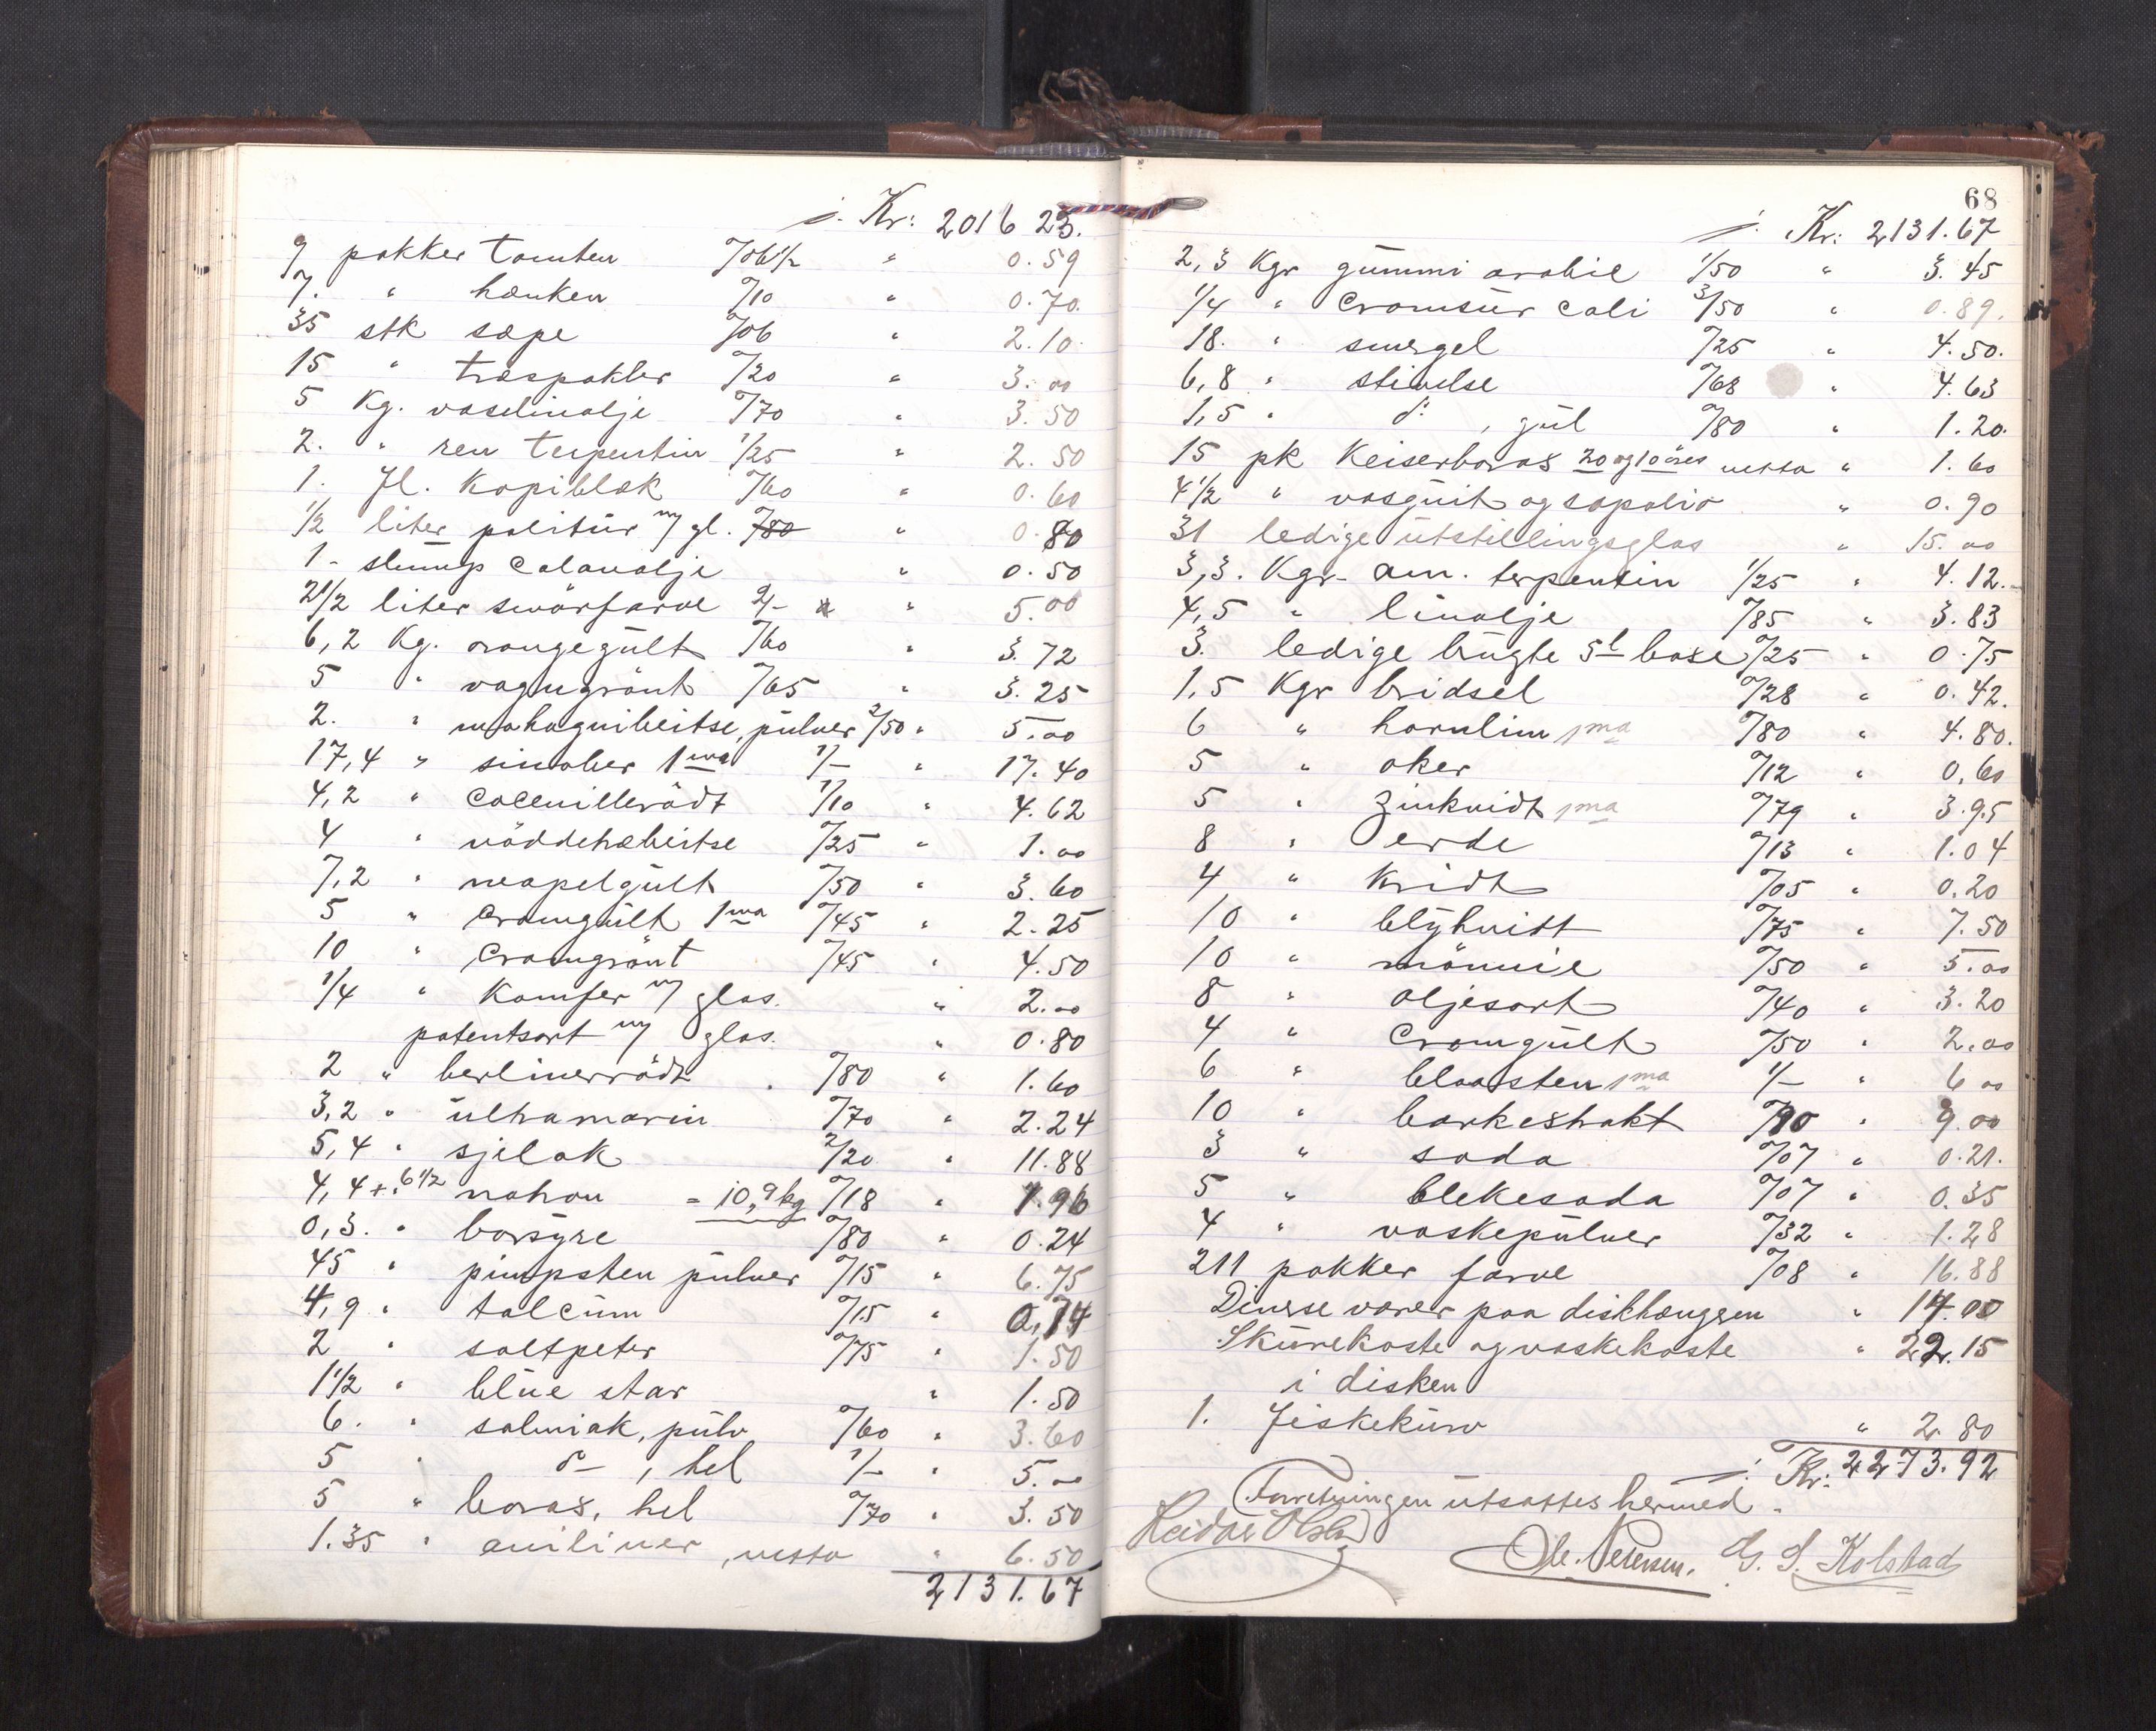 ÷ Kr: 2016 23.
9 pakker Tomten %06½ " 0.59
7. " hanken %10 " 0.70.
35 stk sæpe %06 " 2.10.
15 " træspakler %20 " 3.00
5 Kg. vaselinolje %70 " 3.50
2. " ren terpentin 1/25 " 2.50
1. Fl. Kopiblæk %60 " 0.60
½ liter politür m/ gl. %80 " 0.80
1 - slump Calanolje " 0.50
2½ liter swärfarve 2/- " 5.00
6,2 Kg. orangegült %60 " 3.72
5 " vagngrönt %65 " 3.25
2. " mahognibeitse, pülver 2/50 " 5.00
17,4 " sinober 1ma 1/- " 17.40
4,2 " Cocenillerödt 1/10 " 4.62
4 " nöddetræbeitse %25 " 1.00
7,2 " neapelgült %50 " 3.60
5 " Cromgült 1ma %45 " 2.25
10 " Cromgrönt %45 " 4.50
¼ " Kamfer m/ glas. " 2.00
patentsort m/ glas. " 0.80
2 " berlinerrödt %80 " 1.60
3,2 " ültramarin %70 " 2.24
5,4 " sjelak 2/20 " 11.88
4,4 + 6½ natron = 10,9 kg %18 " 1.96
0,3. " borsyre %80 " 0.24
45 " pimpsten pülver %15 " 6.75
4,9 " talcüm %15 " 0,74
2 " saltpeter %75 " 1.50
1½ " blüe star " 1.50
6. " salmiak, pülv %60 " 3.60
5 " do , hel 1/- " 5.00
5 " borax, hel %70 " 3.50
1.35 " aniliner, netto " 6.50
2131.67
68
÷ Kr: 2131.67
2,3 Kgr gümmi arabic 1/50 " 3.45
¼ " Cromsür Cali 3/50 " 0.89.
18. " smergel %25 " 4.50.
6,8 " stivelse %68 " 4.63
1,5 " do , gül %80 " 1.20.
15 pk Keiserborax 20 og 10 öres netto " 1.60
4½ " vasquit og sapolio " 0.90
31 ledige ütstillingsglas " 15.00
3,3. Kgr. am. terpentin 1/25 " 4.12.
4,5 " linolje %85 " 3.83
3. ledige brügte 5l base %25 " 0.75
1,5 Kgr bridsel %28 " 0.42.
6 " hornlim 1ma %80 " 4.80.
5 " oker %12 " 0,60
5 " Zinkvidt 1ma %79 " 3.95
8 " erde %13 " 1.04
4 " Kridt %05 " 0.20
10 " blyhvitt %75 " 7.50
10 " mönnie %50 " 5.00
8 " oljesort %40 " 3.20
4 " Cromgült %50 " 2.00
6 " blaasten 1ma 1/- " 6 00
10 " barkestrakt %90 " 9.00
3 " soda %07 " 0.21.
5 " blekesoda %07 " 0.35
4 " vaskepülver %32 " 1.28
211 pakker farve %08 " 16.88
Diverse varer paa diskhængsen " 14.00
Skürekoste og vaskekoste " 22.15
i disken
1. Fiskekürv " 2.80
÷ Kr: 2273.92
Forretningen ütsattes hermed.
Reidar Olsen Ole. Petersen. G. S. Kolstad